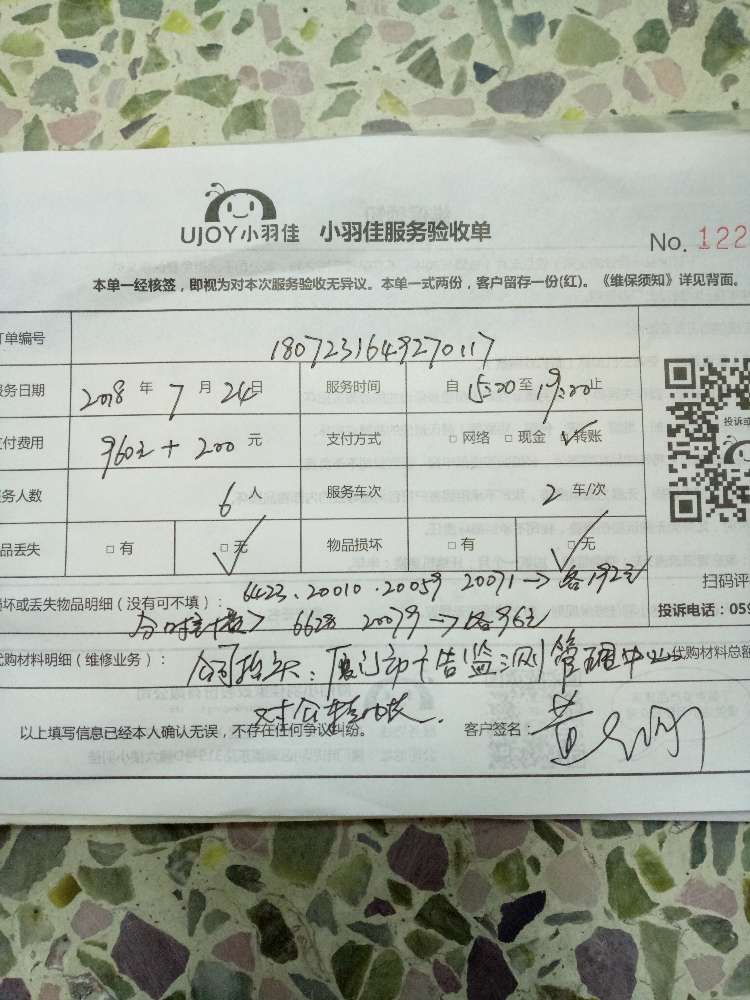 UJOY小羽佳 小羽佳服务验收单
No. 122
本单一经核签，即视为对本次服务验收无异议。本单一式两份，客户留存一份(红)。《维保须知》详见背面。
订单编号 1807231649270117
服务日期 2018 年 7 月 24日 服务时间 自 15:00 至 19:00 止
支付费用 960元 + 200 元 支付方式 □ 网络 □ 现金 ☑转账
投诉或
服务人数 6 人 服务车次 2 车/次
物品丢失 □ 有 ☑无 物品损坏 □ 有 ☑无
扫码评
损坏或丢失物品明细（没有可不填）： 6423.20010.20059 20071→各192元
6628 20079→各96元
投诉电话：059
代购材料明细（维修业务）： 公司抬头： 告监测管理中心
代购材料总额
对公转账.
以上填写信息已经本人确认无误，不存在任何争议纠纷。 客户签名： 黄